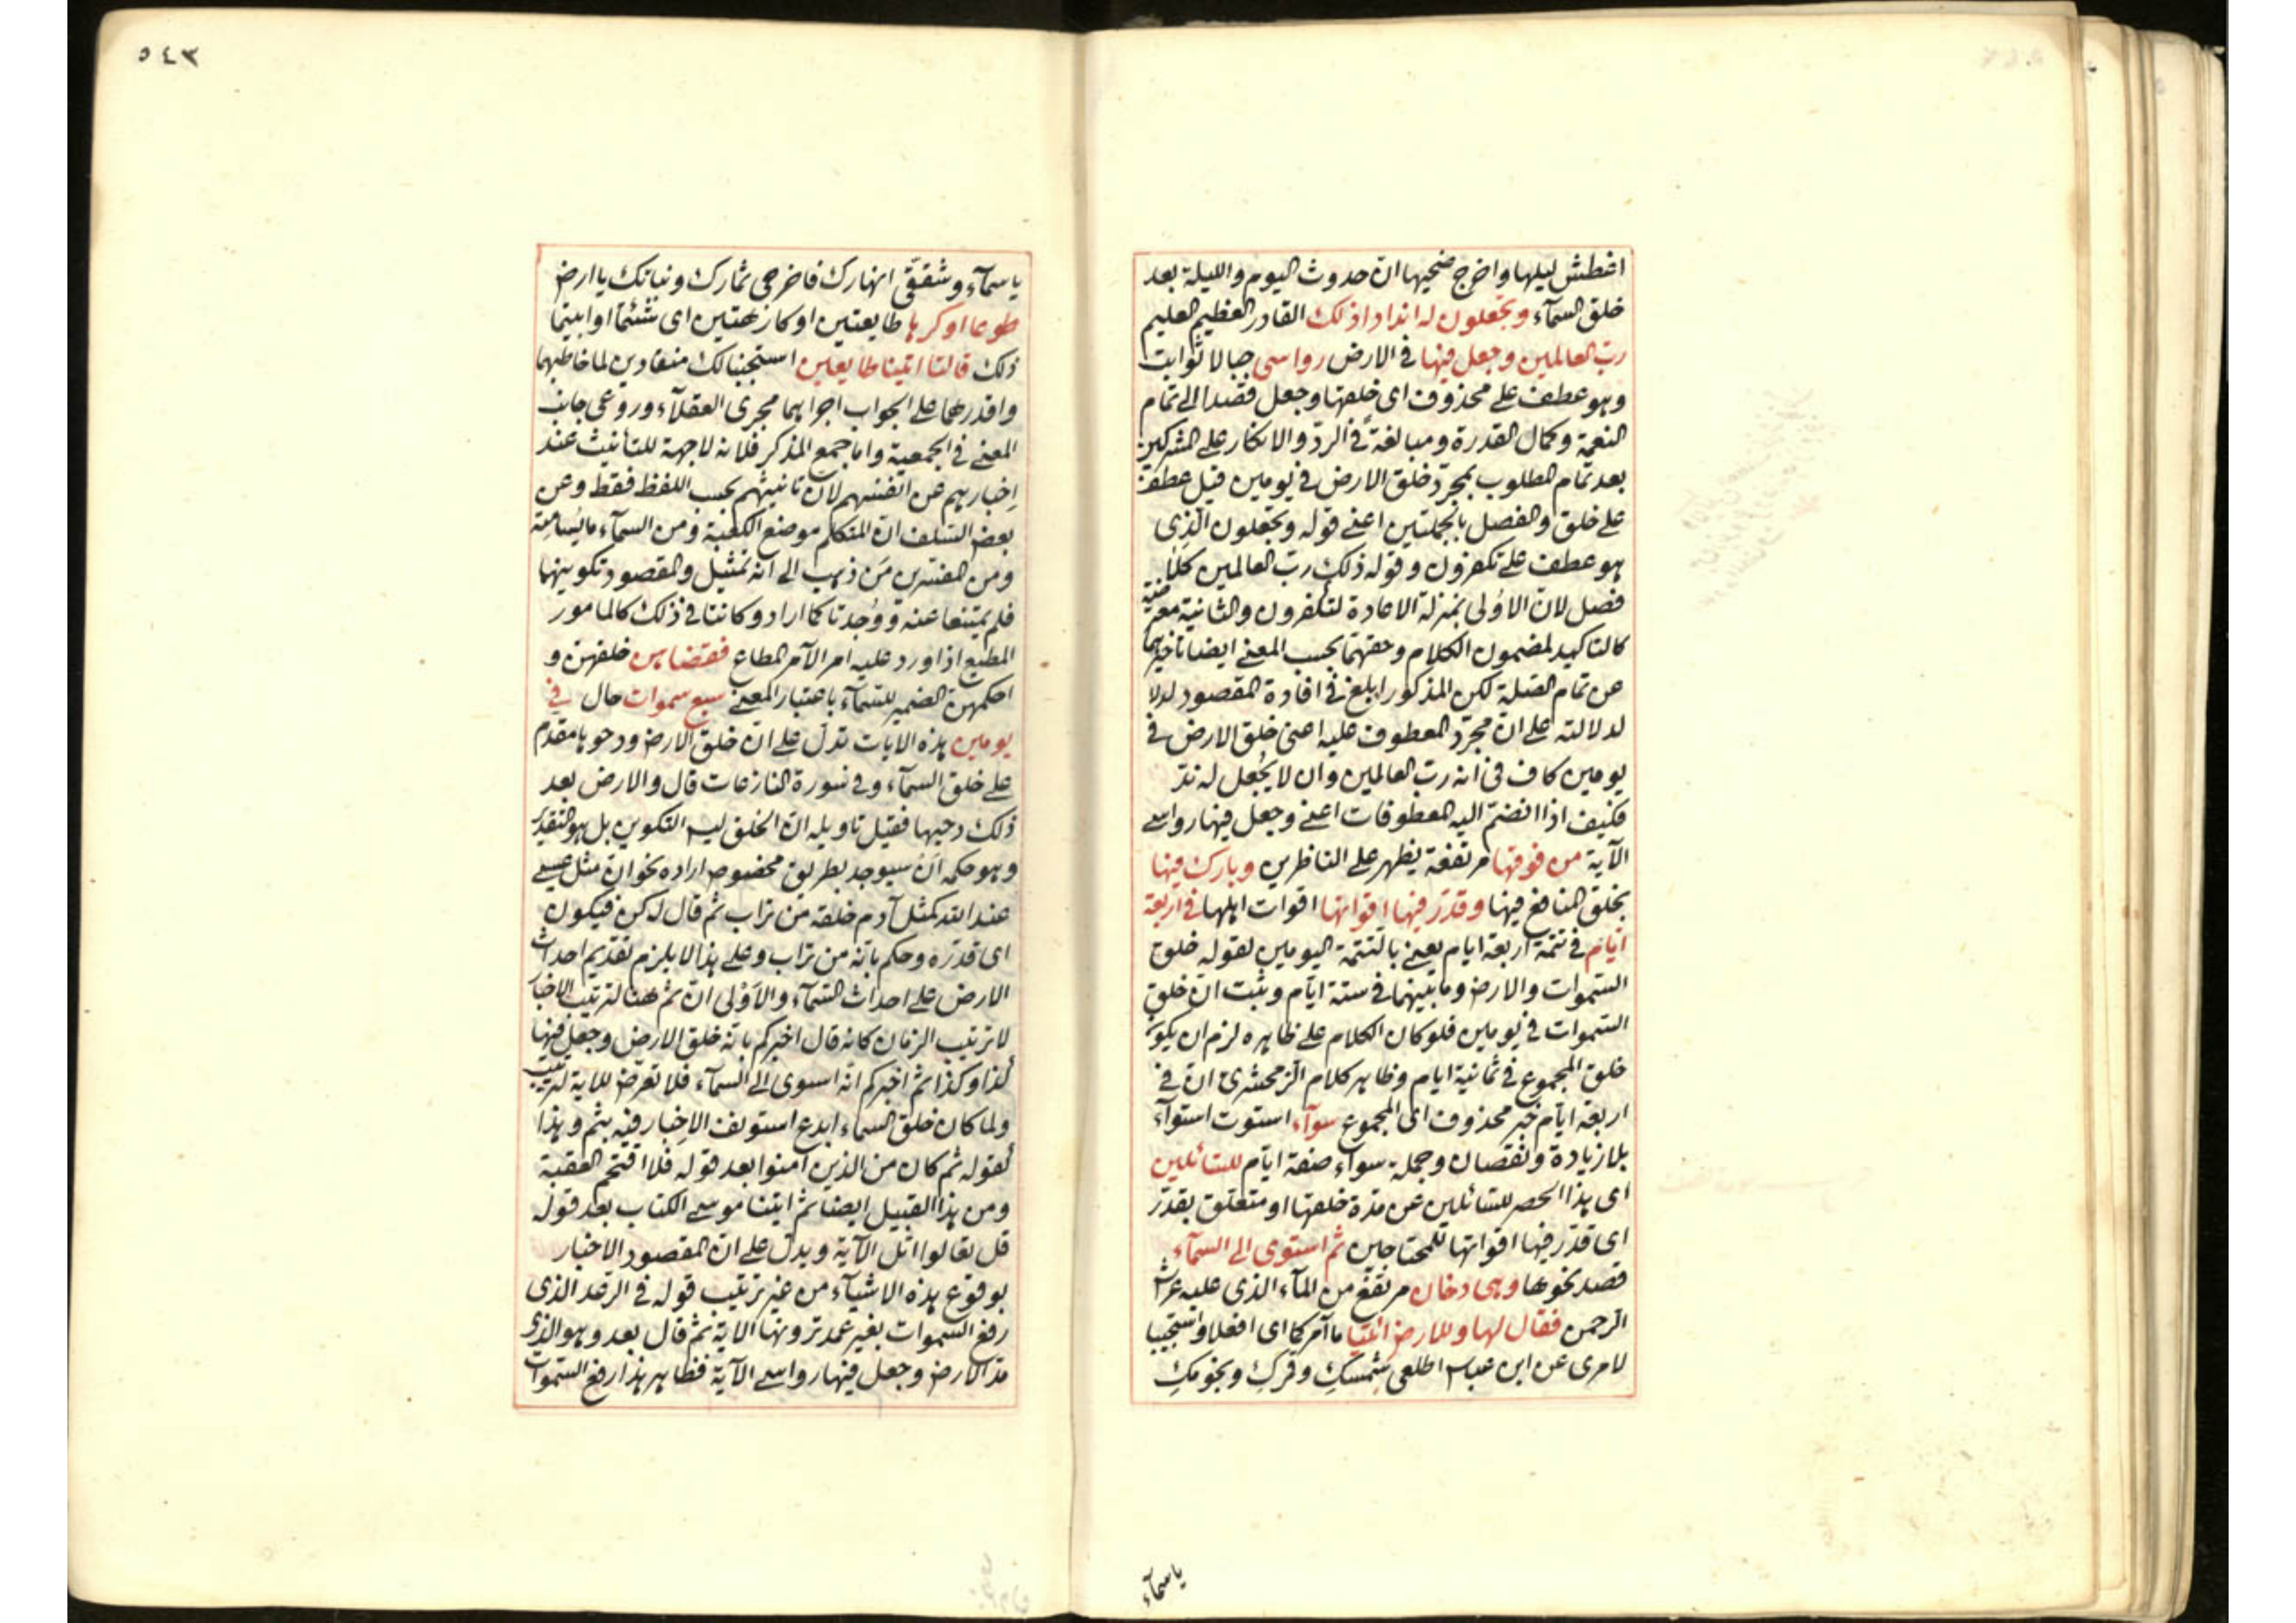 اغطش ليلها واخرج ضحيها ان حدوث اليوم والليلة بعد
خلق السمآء وتجعلون له اندادا ذلك القادر العظيم العليم
رب العالمين وجعل فيها في الارض رواسى جبالا ثوابت
وهو عطف على محذوف اى خلقها وجعل قصدا الى تمام
النعمة وكمال القدرة ومبالغةً في الردّ والانكار على المشركين
بعد تمام المطلوب بمجرّد خلق الارض في يومين قيل عطف
على خلق والفصل بالجملتين اعنى قوله وتجعلون الّذِى
هو عطف على تكفرون وقوله ذلك ربّ العالمين كلا
فصل لان الاولى بمنزلة الاعادة لتكفرون والثانية معترضة
كالتاكيد لمضمون الكلام وحقهما بحسب المعنى ايضا تاخيرهما
عن تمام الصّلة لكن المذكور ابلغ في افادة المقصود لدلا
لدلالته على ان مجرّد المعطوف عليه اعنى خلق الارض في
يومين كاف في انه ربّ العالمين وان لا يُجعل له ندّ
فكيف اذا انضمّ اليه المعطوفات اعنى وجعل فيها رواسى
الآية من فوقها مرتفعة يظهر على الناظرين وبارك فيها
بخلق المنافع فيها وقدّر فيها اقواتها اقوات اهلها في اربعة
ايّام في تتمّة اربعة ايام يعنى بالتتمّة اليومين لقوله خلق
السّموات والارض وما بينهما في ستة ايّام وثبت ان خلق
السّموات في يومين فلو كان الكلام على ظاهره لزم ان يكون
خلق المجموع في ثمانية ايام وظاهر كلام الزمخشرى ان في
اربعة ايّام خبر محذوف اى المجموع سوآء استوت استوآء
بلا زيادة ونقصان وجملة سوآء صفة ايّام للسّائلين
اى هذا الحصر للسّائلين عن مدّة خلقها او متعلق بقدّر
اى قدّر فيها اقواتها للمحتاجين ثم استوى الى السمآء
قصد نحوها وهى دخان مرتفع من المآء الذى عليه عرش
الرحمن فقال لها وللارض ائتيا ما آمركما اى افعلا واستجيبا
لامرى عن ابن عباس اطلعى شمسكِ وقمركِ ونجومكِ
ياسمآء
٥٤٣
ياسمآء وشققّى انهارك فاخرجى ثمارك ونباتك ياارض
طوعا او كرها طايعتين او كارهتين اى شئتما او ابيتما
ذلك قالتا اتينا طايعين استجبنا لك منقادين لما خاطبهما
واقدرهما على الجواب اجراهما مجرى العقلآء وروعى جانب
المعنى في الجمعية واما جمع المذكر فلانه لا جهة للتأنيث عند
اِخبارهم عن انفسهم لان تانيثهم بحسب اللفظ فقط وعن
بعض السّلف ان المتكلم موضع الكعبة ومن السمآء ما يُسامته
ومن المفسّرين مَن ذهب الى انه تمثيل والمقصود تكوينها
فلم يمتنعا عنه ووُجدتا كما اراد وكانتا في ذلك كالمامور
المطيع اذا ورد عليه امر الآمر المطاع فقضاهن خلقهن و
احكمهن الضمير للسّمآء باعتبار المعنى سبع سموات حال في
يومين هذه الايات تدلّ على ان خلق الارض ودحوها مقدّم
على خلق السمآء وفي سورة النازعات قال والارض بعد
ذلك دحيها فقيل تاويله ان الخلق ليس التكوين بل هو التقدير
وهو حكمه اَن سيوجد بطريق مخصوص اراده نحو ان مثل عيسى
عند الله كمثل آدم خلقه من تراب ثم قال له كن فيكون
اى قدّره وحكم بانّه من تراب وعلى هذا لا يلزم تقديم احداث
الارض على احداث السّمآء والاَوْلى ان ثم هنا لترتيب الاخبار
لا ترتيب الزمان كانه قال اخبركم بانّه خلق الارض وجعل فيها
كذا وكذا ثم اخبركم انّه استوى الى السمآء فلا تعرّض للاية لترتيب
ولما كان خلق السماء ابدع استونف الاِخبار فيه بثم وهذا
كقوله ثم كان من الذين آمنوا بعد قوله فلا اقتحم العقبة
ومن هذا القبيل ايضا ثم اتينا موسى الكتاب بعد قوله
قل تعالوا اتل الآية ويدلّ على ان المقصود الاخبار
بوقوع هذه الاشيآء من غير ترتيب قوله في الرعد الذى
رفع السموات بغير عمد ترونها الاية ثم قال بعد وهو الذى
مدّ الارض وجعل فيها رواسى الآية فظاهر هذا رفع السّموات